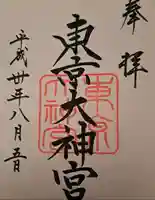 奉拝
東京大神宮
平成卅年八月五日
東京大神宮